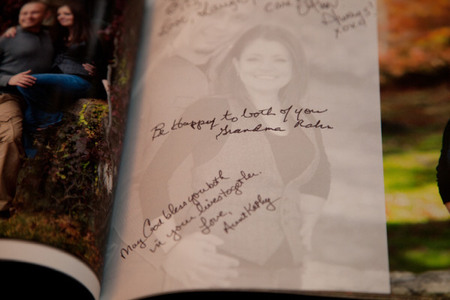 Love, Laugh
Always!
xoxo
Be Happy to both of you
Grandma
May God bless you both
in your lives together.
Love,
Aunt Kathy